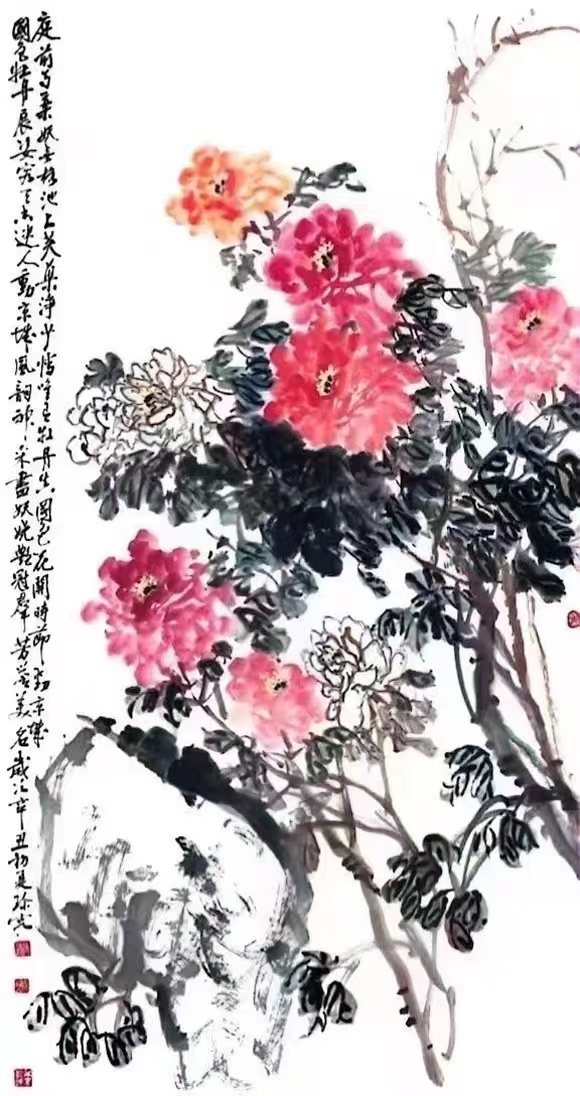 庭前芍藥妖無格池上芙蕖淨少情唯有牡丹真國色花開時節動京城
國色牡丹展姿容迷人動京城風韻神采盡妖嬈艷冠群芳美名歲次辛丑初夏